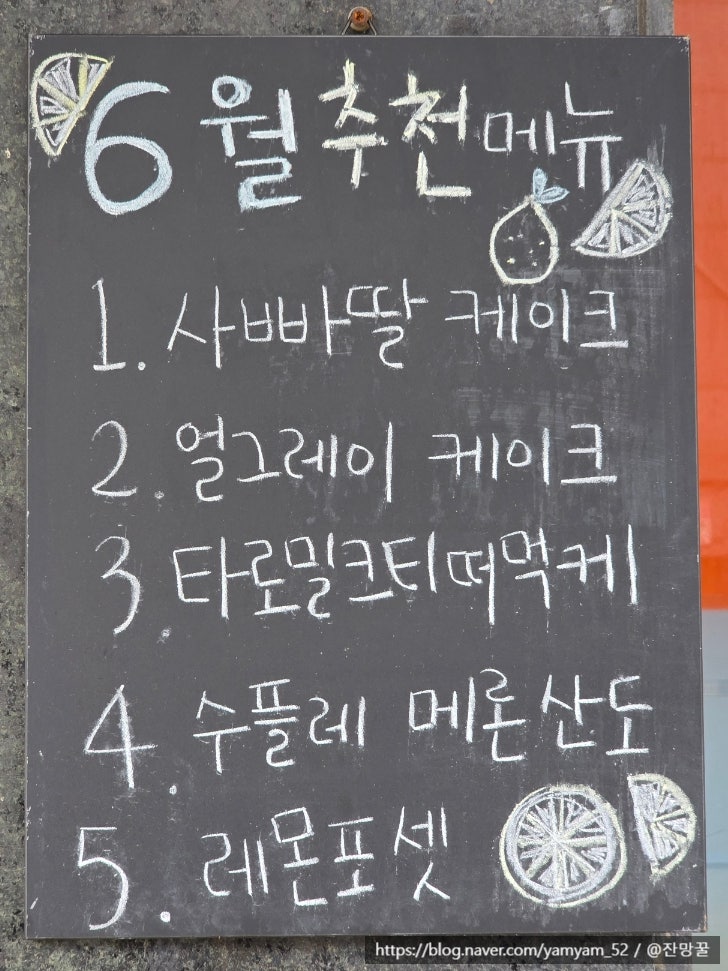 6월 추천 메뉴
1. 사빠딸 케이크
2. 얼그레이 케이크
3. 타로밀크티떠먹케
4. 수플레 메론산도
5. 레몬포셋
https://blog.naver.com/yamyam_52 / @잔망꿀